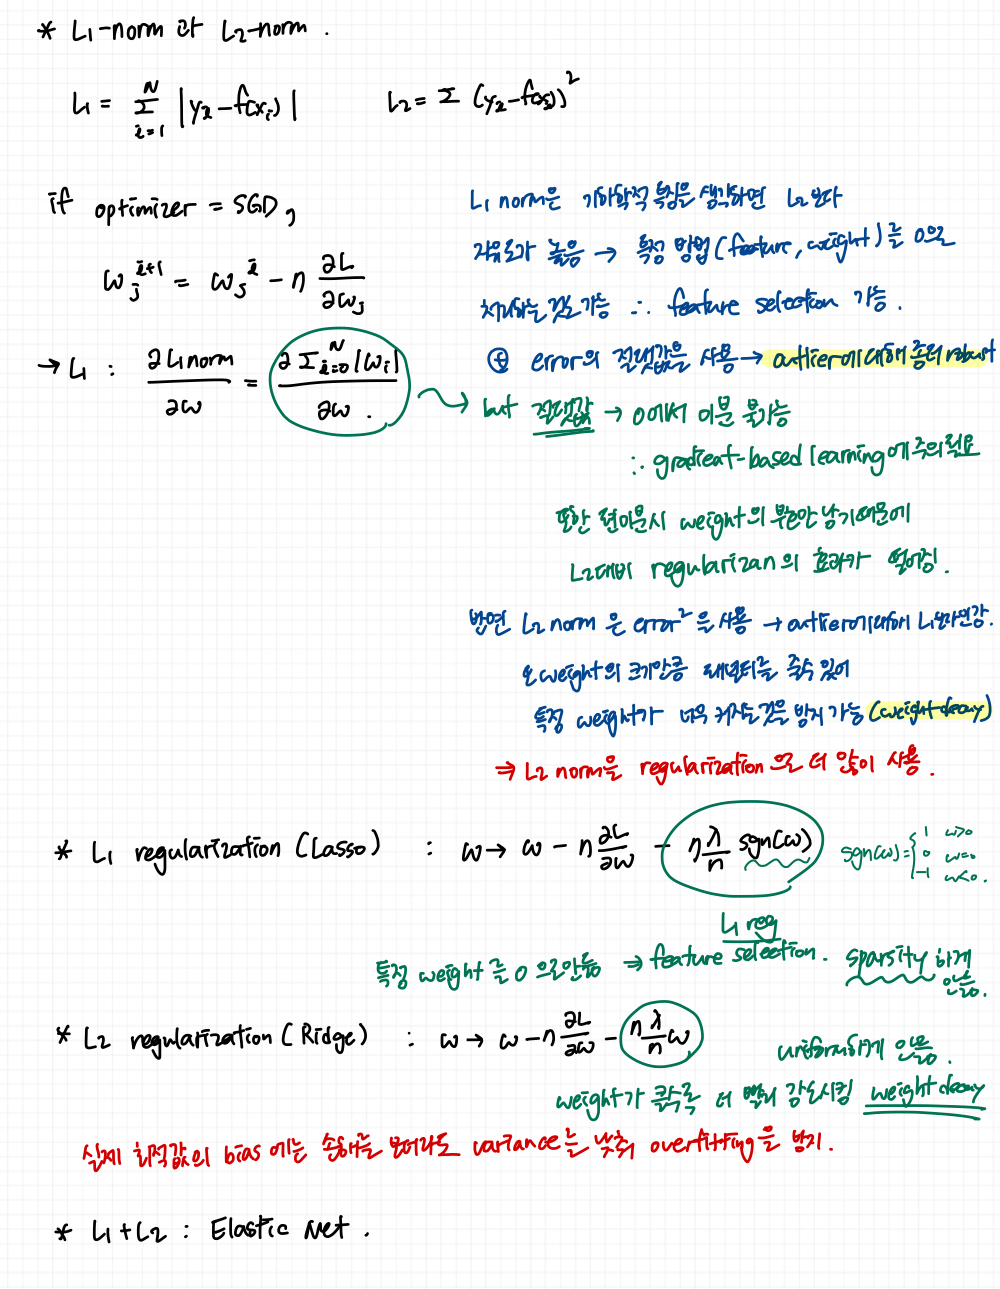 * L1-norm 과 L2-norm .
L1 = Σ_{i=1}^{N} |yi - f(xi)|    L2 = Σ (yi - f(xi))²
if optimizer = SGD,
w_j^{i+1} = w_j^{i} - η ∂L/∂w_j
→ L1 : ∂L1norm/∂w = ∂Σ_{i=0}^{N}|wi|/∂w .
L1 norm은 기하학적 특징을 생각하면 L2 보다
자유도가 높음 → 특정 방법(feature, weight)를 0으로
처리하는것도 가능 ∴ feature selection 가능 .
⊕ error의 절댓값을 사용 → outlier에 대해 좀더 robust
but 절댓값 → 0에서 미분 불가능
∴ gradient-based learning에 주의 필요
또한 편미분시 weight의 부호만 남기때문에
L2대비 regularizan의 효과가 떨어짐.
반면 L2 norm 은 error² 을 사용 → outlier에 대해 L1보다 민감.
또 weight의 크기만큼 패널티를 줄수 있어
특정 weight가 너무 커지는것을 방지 가능 (weight decay)
⇒ L2 norm을 regularization 으로 더 많이 사용 .
* L1 regularization (Lasso) : w → w - η ∂L/∂w - η λ/n sgn(w)
sgn(w) = { 1 w>0
0 w=0
-1 w<0 .
L1 reg
특정 weight 를 0 으로만듦 ⇒ feature selection . sparsity 하게
만듦.
* L2 regularization (Ridge) : w → w - η ∂L/∂w - η λ/n w
uniform하게 만듦 .
weight가 클수록 더 빨리 감소시킴 weight decay
실제 최적값의 bias 에는 손해를 보더라도 variance는 낮춰 overfitting 을 방지 .
* L1+L2 : Elastic Net .